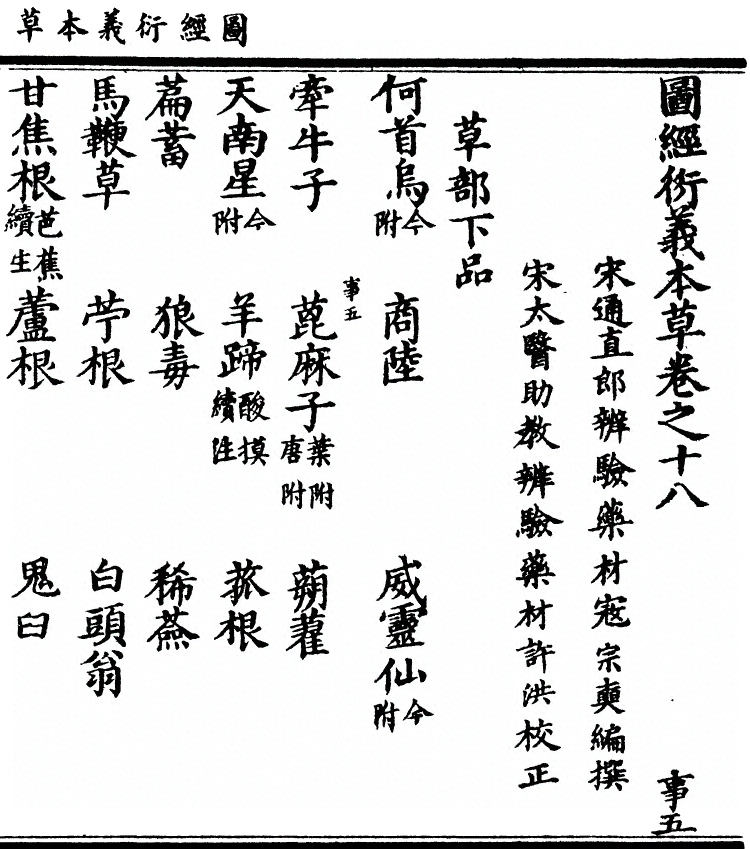 圖經衍義本草
圖經衍義本草卷之十八 事五
宋通直郎辨驗藥材寇宗奭編撰
宋太醫助教辨驗藥材許洪校正
草部下品
何首烏今附 商陸 威靈仙今附
事五
牽牛子 蓖麻子葉附唐附 蒴藋
天南星今附 羊蹄酸摸續注 菰根
萹蓄 狼毒 稀薟
馬鞭草 苧根 白頭翁
甘焦根芭蕉續生 蘆根 鬼臼